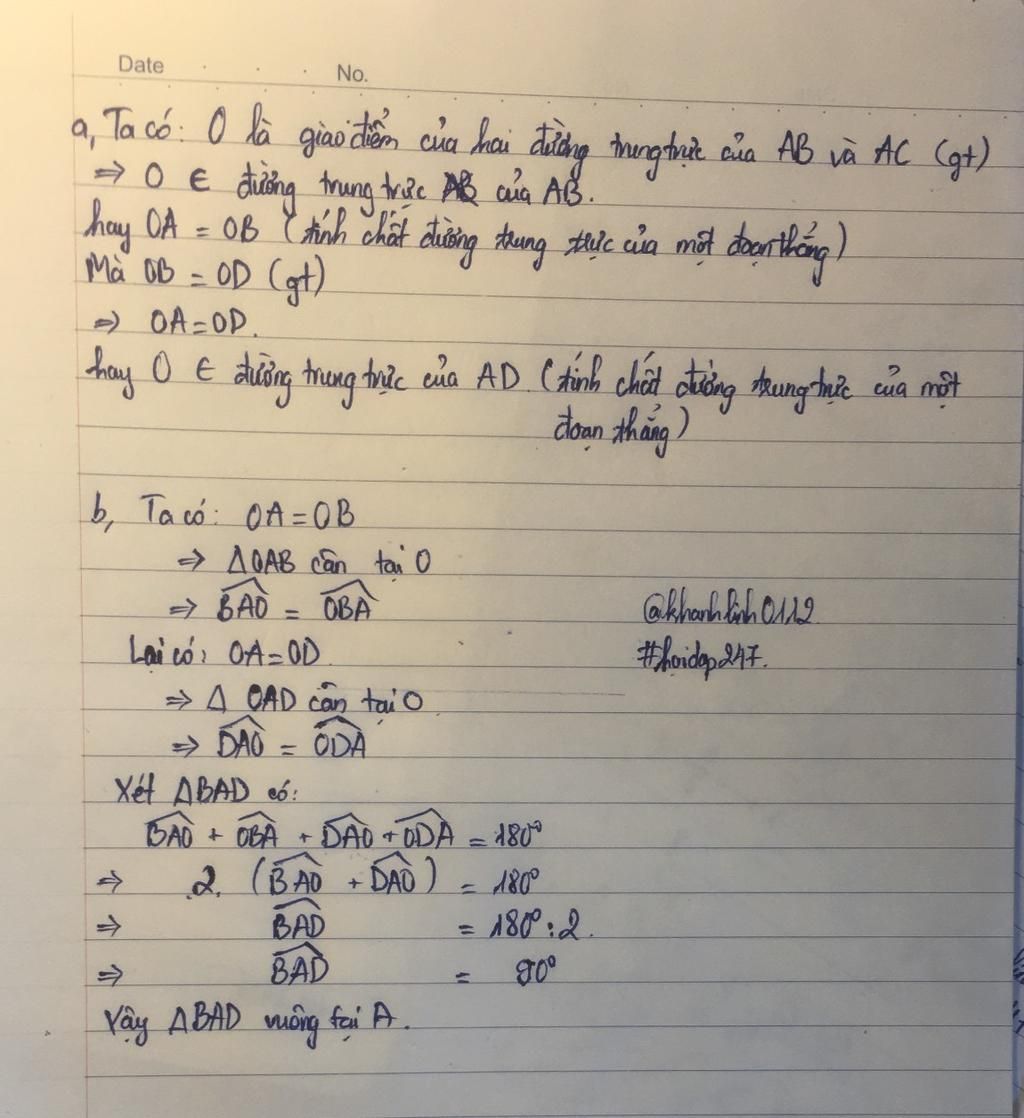 Date No.
a, Ta có: O là giao điểm của hai đường trung trực của AB và AC (gt)
⇒ O ∈ đường trung trực của AB.
hay OA = OB (tính chất đường trung trực của một đoạn thẳng)
Mà OB = OD (gt)
⇒ OA = OD.
hay O ∈ đường trung trực của AD (tính chất đường trung trực của một
đoạn thẳng)
b, Ta có: OA = OB
⇒ ΔOAB cân tại O
⇒ \widehat{BAO} = \widehat{OBA}
@khanhlinh0112
Lại có: OA = OD
#hoidap247.
⇒ Δ OAD cân tại O
⇒ \widehat{DAO} = \widehat{ODA}
Xét ΔBAD có:
\widehat{BAO} + \widehat{OBA} + \widehat{DAO} + \widehat{ODA} = 180°
⇒ 2. (\widehat{BAO} + \widehat{DAO}) = 180°
⇒ \widehat{BAD} = 180° : 2.
⇒ \widehat{BAD} = 90°
Vậy ΔBAD vuông tại A.